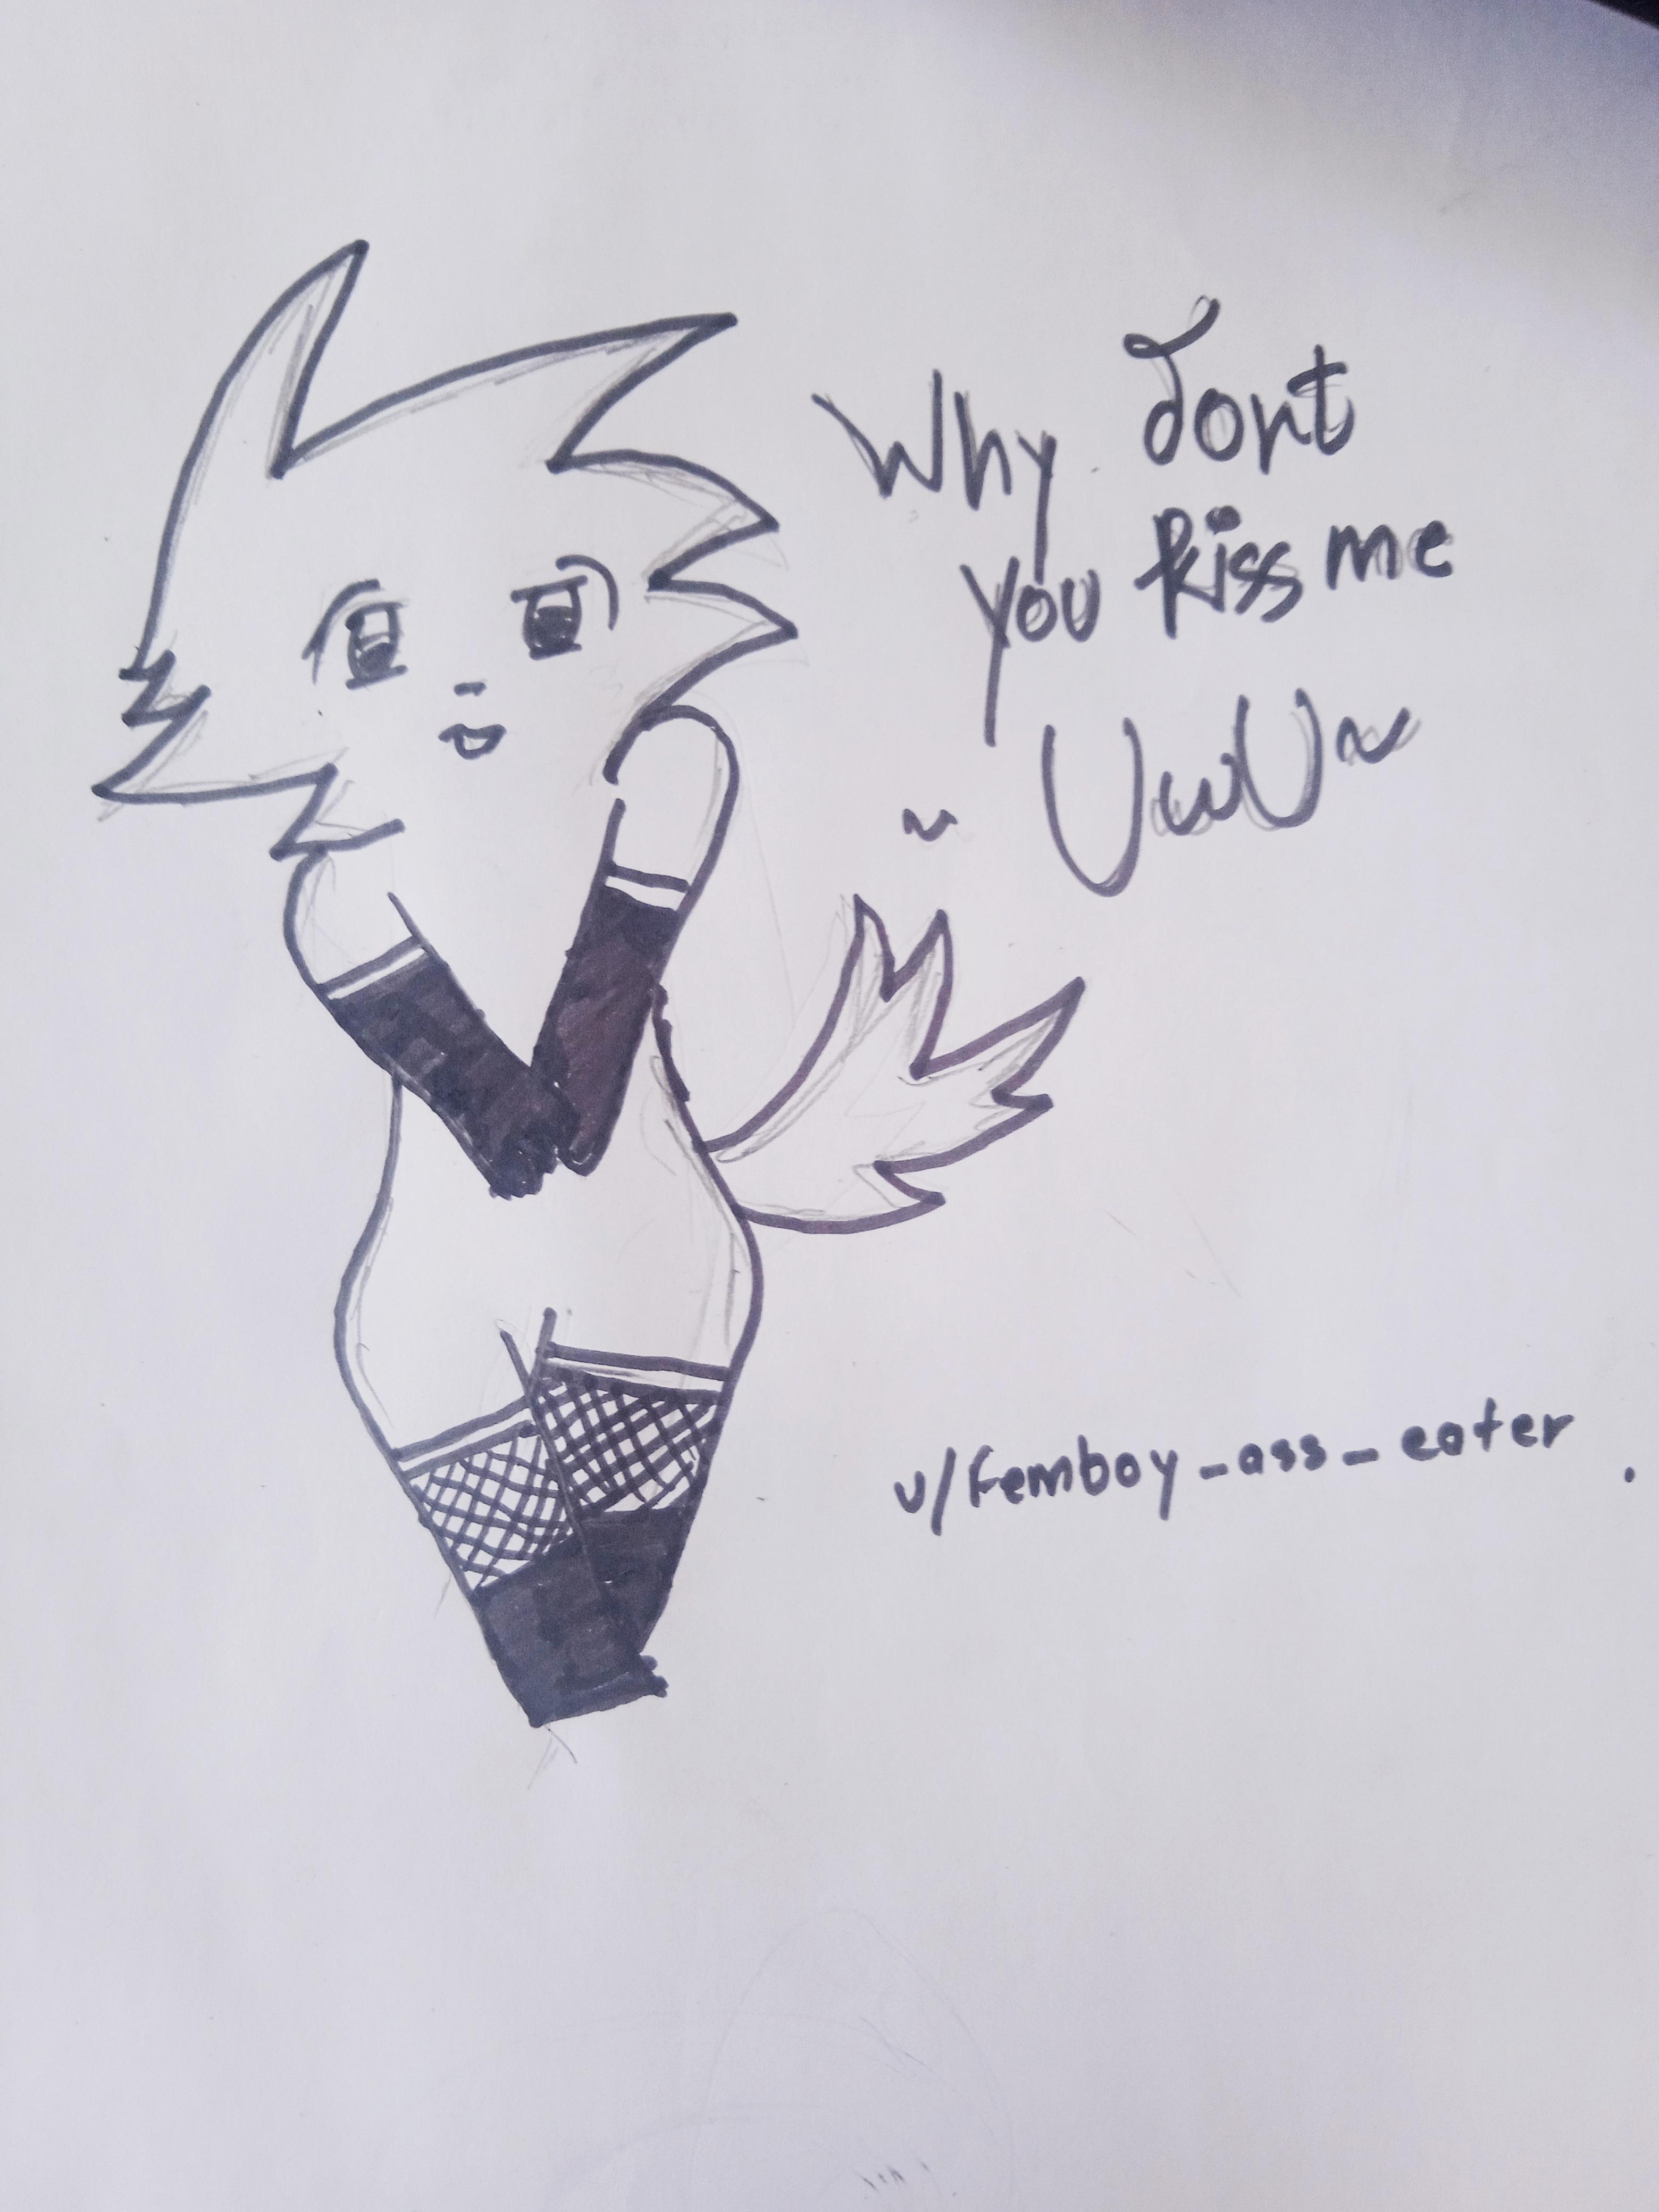 Why dont
you kiss me
~ UwU~
u/femboy_ass_eater